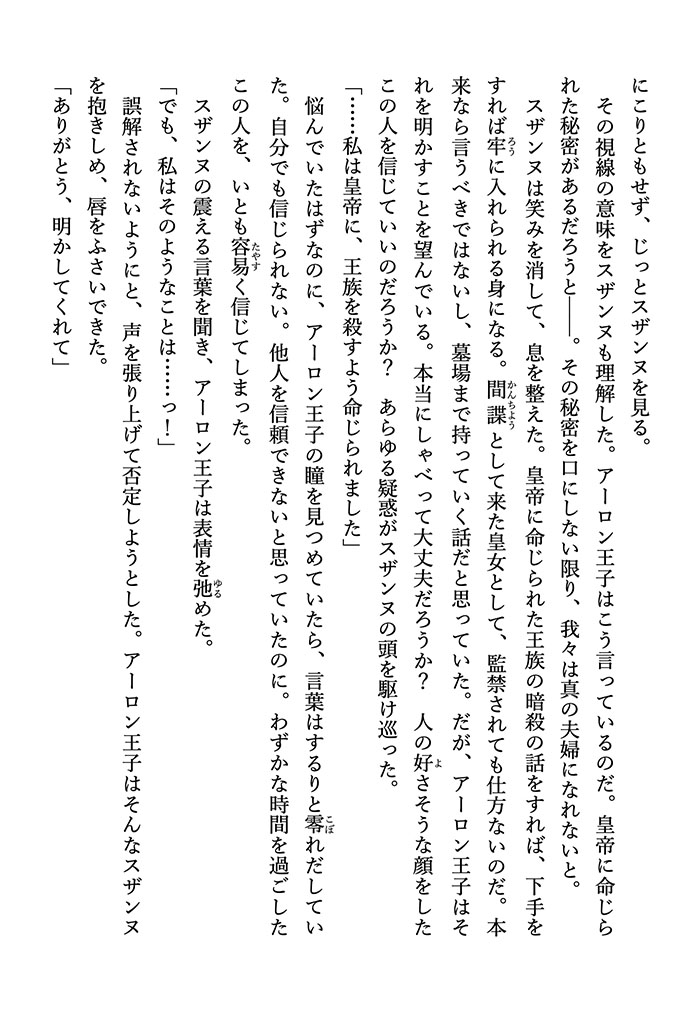 にこりともせず、じっとスザンヌを見る。
　その視線の意味をスザンヌも理解した。アーロン王子はこう言っているのだ。皇帝に命じら
れた秘密があるだろうと――。その秘密を口にしない限り、我々は真の夫婦になれないと。
　スザンヌは笑みを消して、息を整えた。皇帝に命じられた王族の暗殺の話をすれば、下手を
すれば牢に入れられる身になる。間諜として来た皇女として、監禁されても仕方ないのだ。本
来なら言うべきではないし、墓場まで持っていく話だと思っていた。だが、アーロン王子はそ
れを明かすことを望んでいる。本当にしゃべって大丈夫だろうか？　人の好さそうな顔をした
この人を信じていいのだろうか？　あらゆる疑惑がスザンヌの頭を駆け巡った。
「……私は皇帝に、王族を殺すよう命じられました」
　悩んでいたはずなのに、アーロン王子の瞳を見つめていたら、言葉はするりと零れだしてい
た。自分でも信じられない。他人を信頼できないと思っていたのに。わずかな時間を過ごした
この人を、いとも容易く信じてしまった。
　スザンヌの震える言葉を聞き、アーロン王子は表情を弛めた。
「でも、私はそのようなことは……っ！」
　誤解されないようにと、声を張り上げて否定しようとした。アーロン王子はそんなスザンヌ
を抱きしめ、唇をふさいできた。
「ありがとう、明かしてくれて」